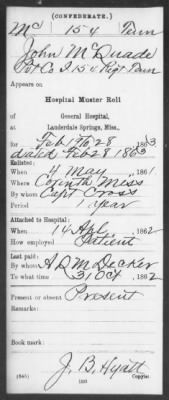 (CONFEDERATE.)
Mc 154 Tenn
John McDuade
Pvt Co I 154 Regt Tenn
Appears on
Hospital Muster Roll
of
General Hospital,
Lauderdale Springs, Miss.,
for Feb 1 to 28 1863
dated Feb 28 1863
Enlisted:
When 4 May 186
Where Corinth Miss
By whom Capt Cross
Period 1 year
Attached to Hospital:
When 14 Apl 1862
How employed Patient
Last paid:
By whom A D M Decker
To what time 31 Oct 1862
Present or absent Present
Remarks:
Book mark:
J. B. Hyatt
Copyist.